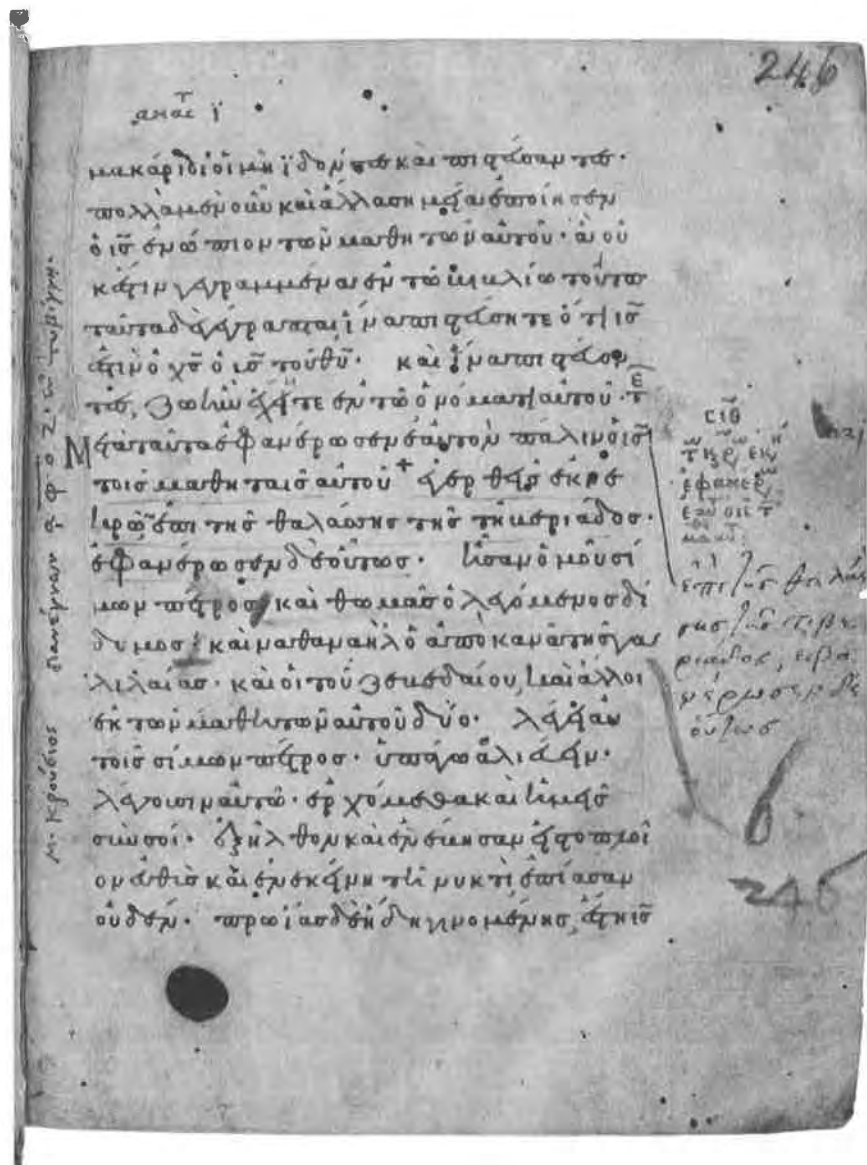 246
μακάριοι οἱ μὴ ϊδόντες καὶ πιστεύσαντες·
πολλὰ μὲν οὖν καὶ ἄλλα σημεῖα ἐποίησεν
ὁ ι̅ς̅ ἐνώπιον τῶν μαθητῶν αὐτοῦ· ἃ οὐ
κ ἔστιν γεγραμμένα ἐν τῶ βιβλίω τούτω
ταῦτα δὲ γέγραπται ἵνα πιστεύσητε ὅτι ι̅ς̅
ἐστιν ὁ χ̅ς̅ ὁ υ̅ς̅ τοῦ θ̅υ̅· καὶ ἵνα πιστεύον
τες, ζωὴν ἔχητε ἐν τῶ ὀνόματι αὐτοῦ·
Μετὰ ταῦτα ἐφανέρωσεν ἑαυτὸν πάλιν ὁ ι̅ς̅
τοῖς μαθηταῖς αὐτοῦ + ἐγερθεὶς ἐκ νε
κρῶν ἐπὶ τῆς θαλάσσης τῆς τηβεριάδος·
ἐφανέρωσεν δὲ οὕτως· ἦσαν ὁμοῦ σί
μων πέτρος, καὶ θωμᾶς ὁ λεγόμενος δί
δυμος· καὶ ναθαναὴλ ὁ ἀπὸ κανᾶ τῆς γα
λιλαίας· καὶ οἱ τοῦ ζεβεδαίου, καὶ ἄλλοι
ἐκ τῶν μαθητῶν αὐτοῦ δύο· λέγει αὐ
τοῖς σίμων πέτρος· ὑπάγω ἁλιεύειν·
λέγουσιν αὐτῶ· ἐρχόμεθα καὶ ἡμεῖς
σὺν σοί· ἐξῆλθον καὶ ἐνέβησαν εἰς τὸ πλοῖ
ον εὐθὺς καὶ ἐν ἐκείνη τῆ νυκτὶ ἐπίασαν
οὐδέν· πρωΐας δὲ ἤδη γινομένης, ἔστη ι̅ς̅
σιθ
ἐπὶ τῆς θαλάσ
σης τῆς τιβε
ριαδος, ἐφα
νέρωσεν δὲ
οὕτως
6
246
Μ. Κρούσιος